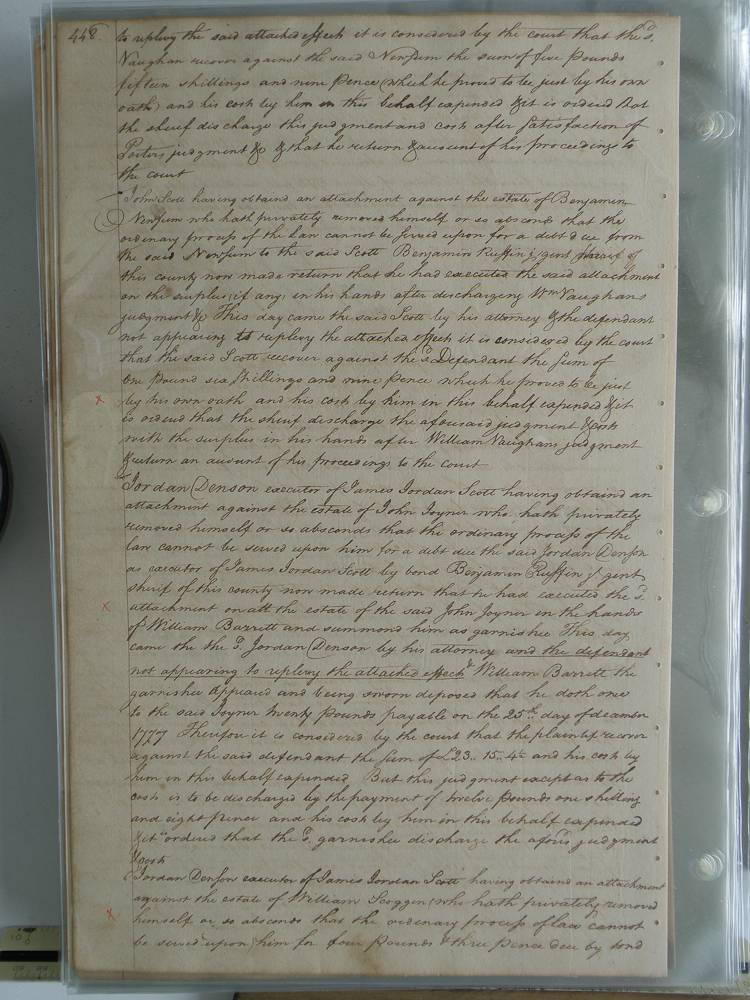 448
to replevy the said attached effects it is considered by the court that the sd.
Vaughan recover against the said Newsum the sum of five Pounds
fifteen shillings and nine Pence (which he proved to be just by his own
oath) and his cost by him in this behalf expended &it is ordered that
the sherif discharge this judgment and costs after satisfaction of
Porters judgment &c & that he return & account of his proceedings to
the court
John Scott having obtaind an attachment against the estate of Benjamin
Newsum who hath privately removed himself or so absconds that the
ordinary process of the Law cannot be served upon for a debt due from
the said Newsum to the said Scott Benjamin Ruffin jr gent sherif of
this county now made return that he had executed the said attachment
on the surplus, if any, in his hands after discharging Wm Vaughans
judgment &c This day came the said Scott by his attorney & the defendant
not appearing to replevy the attached effects it is considered by the court
that the said Scott recover against the sd. Defendant the sum of
One Pound six shillings and nine Pence which he proved to be just
by his own oath and his costs by him in this behalf expended &it
is orderd that the sherif discharge the aforesaid judgment &costs
with the surplus in his hands after William Vaughans judgment
&return an account of his proceedings to the court
Jordan Denson executor of James Jordan Scott having obtaind an
attachment against the estate of John Joyner who hath privately
removed himself or so absconds that the ordinary process of the
law cannot be served upon him for a debt due the said Jordan Denson
as executor of James Jordan Scott by bond Benjamin Ruffin jr gent
sherif of this county now made return that he had executed the sd.
attachment on all the estate of the said John Joyner in the hands
of William Barrett and summond him as garnishee This day
came the the sd. Jordan Denson by his attorney and the defendant
not appearing to replevy the attached effects William Barrett the
garnishee appeared and being sworn deposed that he doth owe
to the said Joyner twenty Pounds payable on the 25th day of decembr
1777 Therefore it is considered by the court that the plaintif recover
against the said defendant the sum of £23.. 15.. 4 and his costs by
him in this behalf expended But this judgment except as to the
costs is to be discharged by the payment of twelve Pounds one shilling
and eight pence and his cost by him in this behalf expended
&it ordered that the sd. garnishee discharge the afores judgment
&costs
Jordan Denson executor of James Jordan Scott having obtaind an attachment
against the estate of William Scoggen, who hath privately removed
himself or so absconds that the ordinary process of law cannot
be served upon him for four Pounds & three pence due by bond